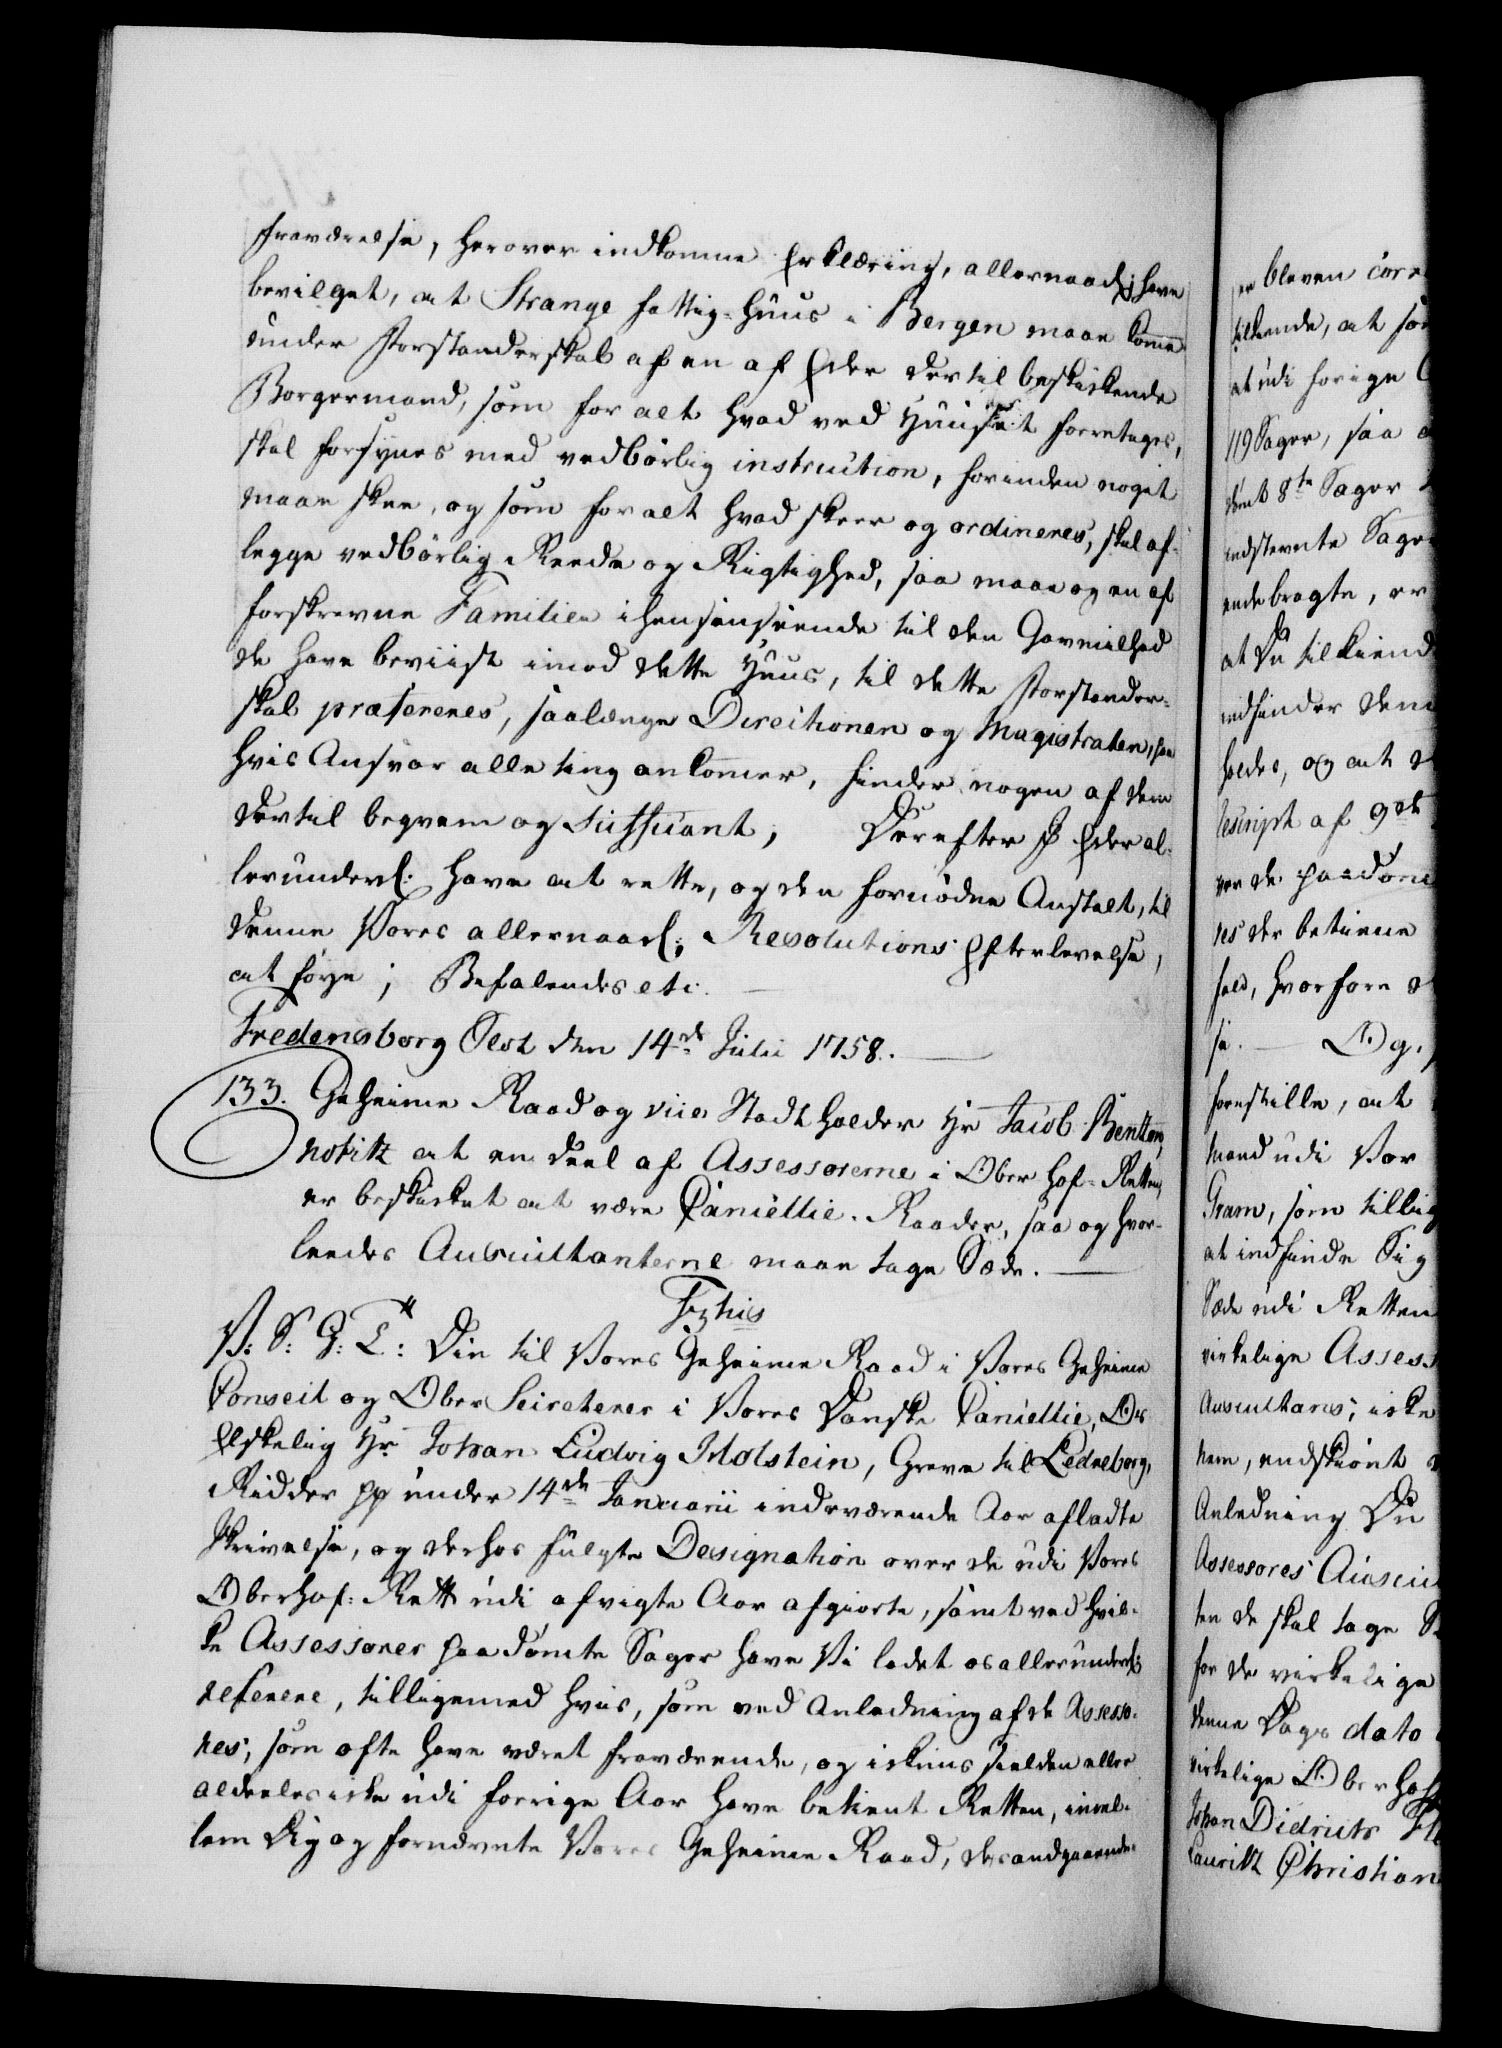 fraværelse, herover indkomne Erklæring, allernaad: have
bevilget, at Strange Fattig-Huus i Bergen maae komme
under Forstanderskab af en af Eder dertil beskikkende
Borgermand, som for alt hvad ved Huuset foretages,
skal forsynes med vedbørlig instruction, forinden noget
maae skee, og som for alt hvad skeer og ordineres, skal af-
legge vedbørlig Reede og Rigtighed, saa maae og en af
forskrevne Familie i henseende til den Gavmilhed
de have beviist imod dette Huus, til dette Forstander-
skab præfereres, saalænge Directionen og Magistraten, paa
hvis Ansvar alle ting ankommer, finder nogen af dem
dertil beqvem og Suffisant; Derefter I Eder al-
lerunderd: have at rette, og den fornødne Anstalt, til
denne Vores allernaad: Resolutions Efterlevelse,
at føye; Befalendes etc.
Fredensborg Slot den 14de Julii 1758.
133. Geheime Raad og vice Stadtholder Hr Jacob Bentzon,
notitz at en deel af Assessorerne i Ober Hof-Retten,
er beskikket at være Cancellie-Raader, saa og hvor-
leedes Auscultanterne maae tage Sæde.
V: S: G: T: Din til Vores Geheime Raad i Vores Geheime
Conseil og Ober Secreterer i Vores Danske Cancellie, Os
Elskelig Hr Johan Ludvig Holstein, Greve til Ledreborg,
Ridder pp under 14de Januarii indeværende Aar afladte
Skrivelse, og derhos fulgte Designation over de udi Vores
Oberhof-Rett udi afvigte Aar afgiorte, samt ved hvil-
ke Assessorer paadømte Sager have Vi ladet os allerunderd:
referere, tilligemed hvis, som ved Anledning af de Assesso-
res, som ofte have været fraværende, og ickuns sielden eller
aldeeles icke udi forrige Aar have betient Retten, imel-
lem Dig og fornævnte Vores Geheime Raad, desangaaende
er bleven cor
tilkiende, at
at udi forige
119 Sager, saa
dømt 8te Sager
indstevnte Sager
ende bragte, er
at Du tilkiend
indfinder dem
holdes, og at
rescript af 9de
ver de paadøm
res der betiene
fald, hvorfore
se. Og,
forestille, at
mand udi Vor
Gram, som tillig
at indfinde Sig
Sæde udi Retten
virkelige Assess
Auscultans, icke
nem, endskiønt
Anledning Du
Assessores Auscul
ten de skal tage
for de virkelige
denne Dags dato
virkelige Ober hof
Johan Didrich
Lauritz Christian